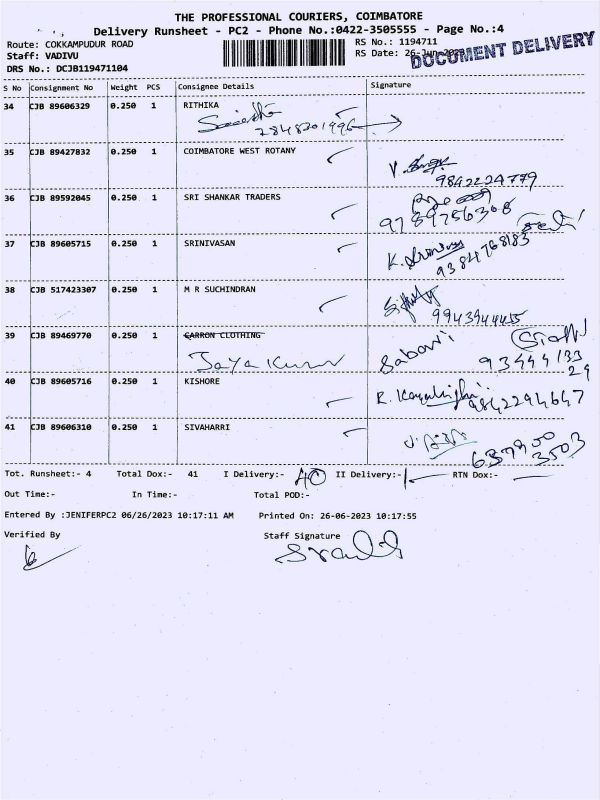 THE PROFESSIONAL COURIERS, COIMBATORE
Delivery Runsheet - PC2 - Phone No.:0422-3505555 - Page No.:4
Route: COKKAMPUDUR ROAD
RS No.: 1194711
Staff: VADIVU
RS Date: 26-Jun-2023
DOCUMENT DELIVERY
DRS No.: DCJB119471104
S No Consignment No Weight PCS Consignee Details Signature
34 CJB 89606329 0.250 1 RITHIKA
7848201996
35 CJB 89427832 0.250 1 COIMBATORE WEST ROTANY
9842224779
36 CJB 89592045 0.250 1 SRI SHANKAR TRADERS
9789756308
37 CJB 89605715 0.250 1 SRINIVASAN
K. 9384768183
38 CJB 517423307 0.250 1 M R SUCHINDRAN
9943944455
39 CJB 89469770 0.250 1 CARRON CLOTHING
Jaya Kumar
Sabowi
93444133
29
40 CJB 89605716 0.250 1 KISHORE
R. 9842294647
41 CJB 89606310 0.250 1 SIVAHARRI
637900
3503
Tot. Runsheet:- 4 Total Dox:- 41 I Delivery:- 40 II Delivery:- 1 RTN Dox:-
Out Time:- In Time:- Total POD:-
Entered By :JENIFERPC2 06/26/2023 10:17:11 AM Printed On: 26-06-2023 10:17:55
Verified By Staff Signature